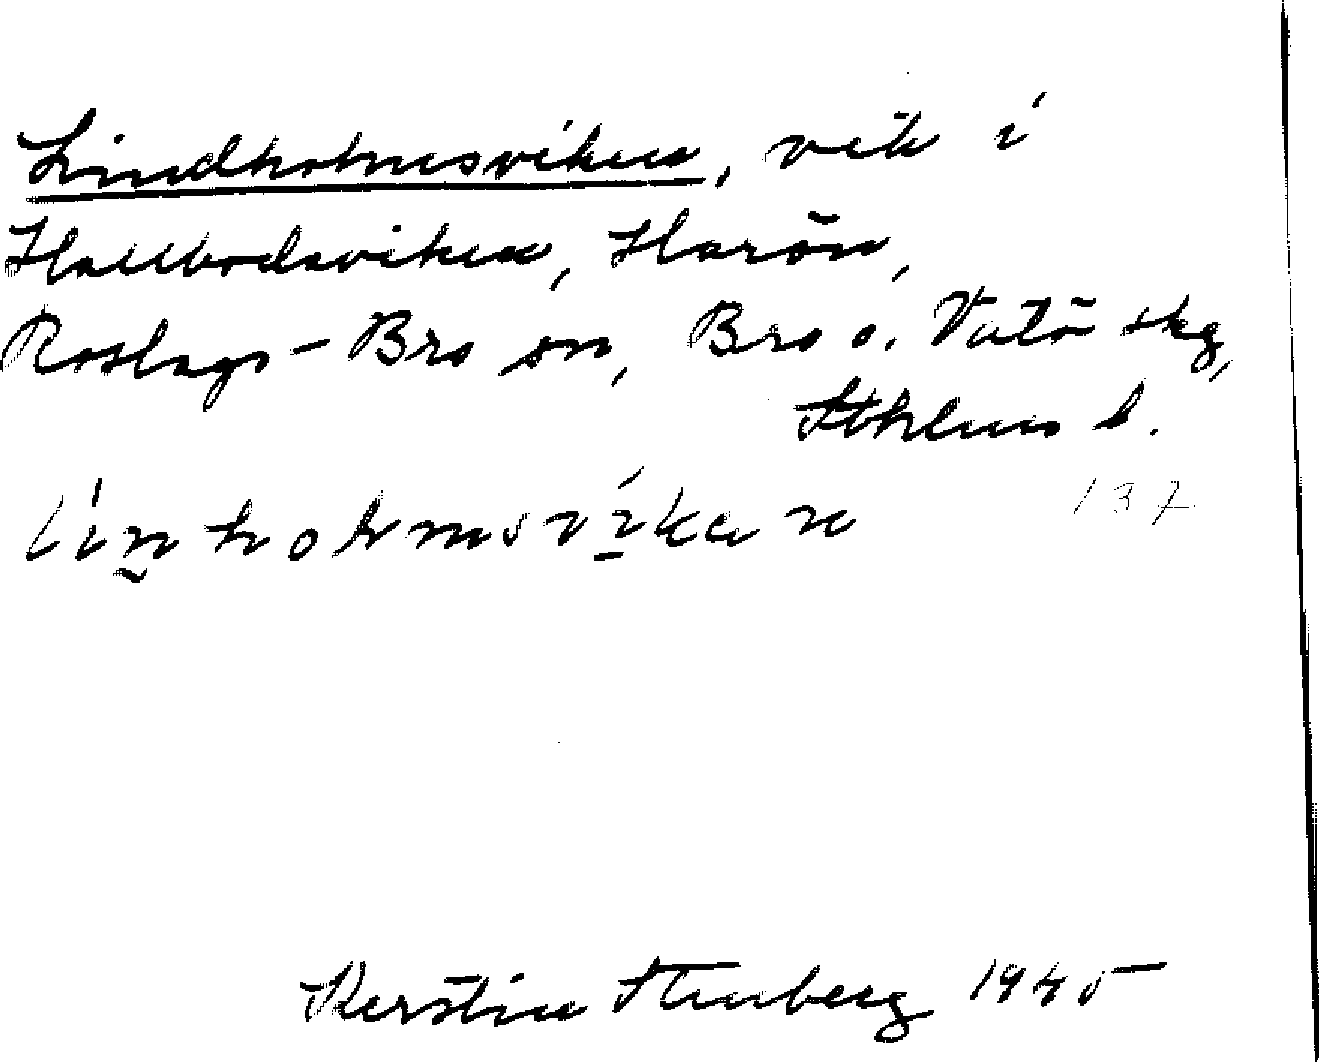 Lindholmsviken, vik i
Hallbodaviken, Harön,
Roslags-Bro sn, Bro o. Vätö skg,
Sthlms l.
137
Kerstin Stenberg 1945